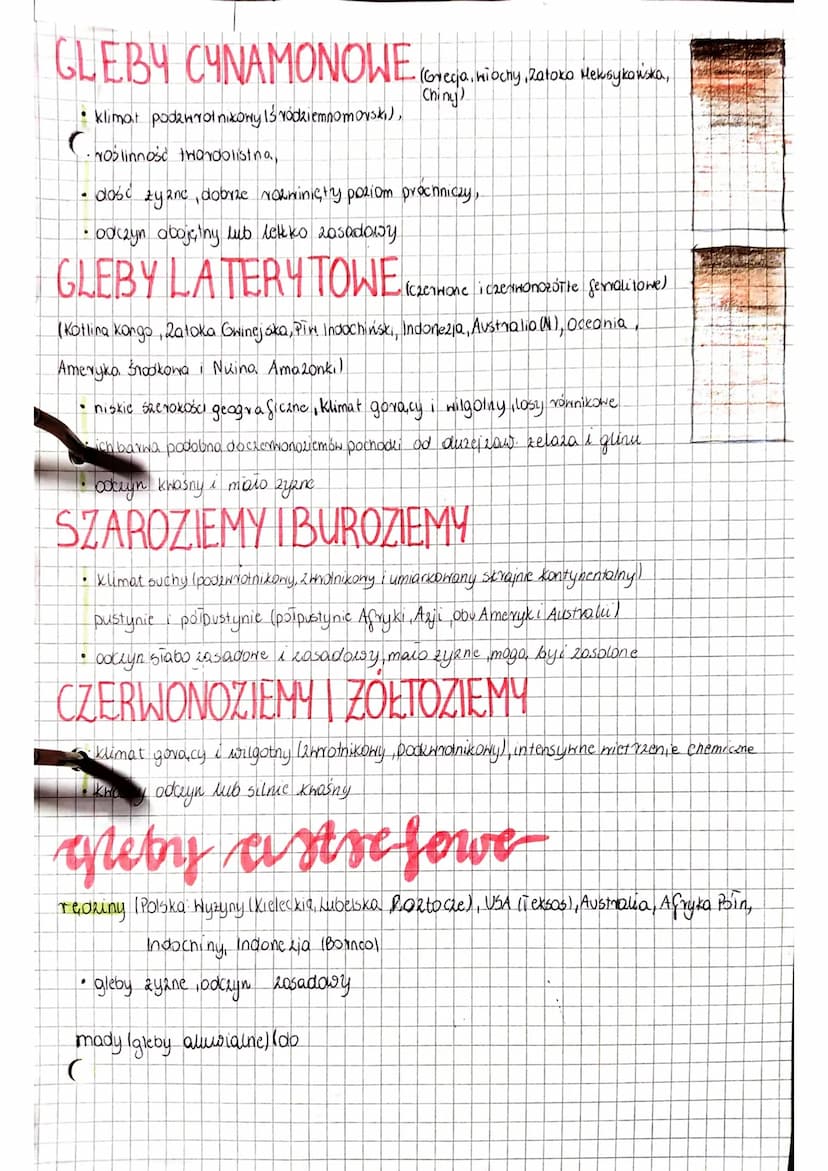 GLEBY CYNAMONOWE (Grecja, Włochy, Zatoka Meksykańska,
Chiny)
• klimat podzwrotnikowy (śródziemnomorski),
• roślinność twardolistna,
• dość żyzne, dobrze rozwinięty poziom próchniczy,
• odczyn obojętny lub lekko zasadowy
GLEBY LATERYTOWE (czerwone i czerwonożółte ferralitowe)
(Kotlina Kongo, Zatoka Gwinejska, Płw Indochiński, Indonezja, Australia (N), Oceania,
Ameryka Środkowa i Nizina Amazonki)
• niskie szerokości geograficzne, klimat gorący i wilgotny, lasy równikowe
• ich barwa podobna do czerwonoziemów pochodzi od dużej zaw. żelaza i glinu
• odczyn kwaśny i mało żyzne
SZAROZIEMY I BUROZIEMY
• klimat suchy (podzwrotnikowy, zwrotnikowy i umiarkowany skrajnie kontynentalny)
pustynie i półpustynie (półpustynie Afryki, Azji, obu Ameryk i Australii)
• odczyn słabo zasadowe i zasadowy, mało żyzne, mogą być zasolone
CZERWONOZIEMY I ŻÓŁTOZIEMY
• klimat gorący i wilgotny (zwrotnikowy, podzwrotnikowy), intensywne wietrzenie chemiczne
• kwaśny odczyn lub silnie kwaśny
gleby astrefowe
rędziny (Polska: Wyżyny (Kielecka, Lubelska Roztocze), USA (Teksas), Australia, Afryka Płn,
Indochiny, Indonezja (Borneo)
• gleby żyzne, odczyn zasadowy
mady (gleby aluwialne) (do